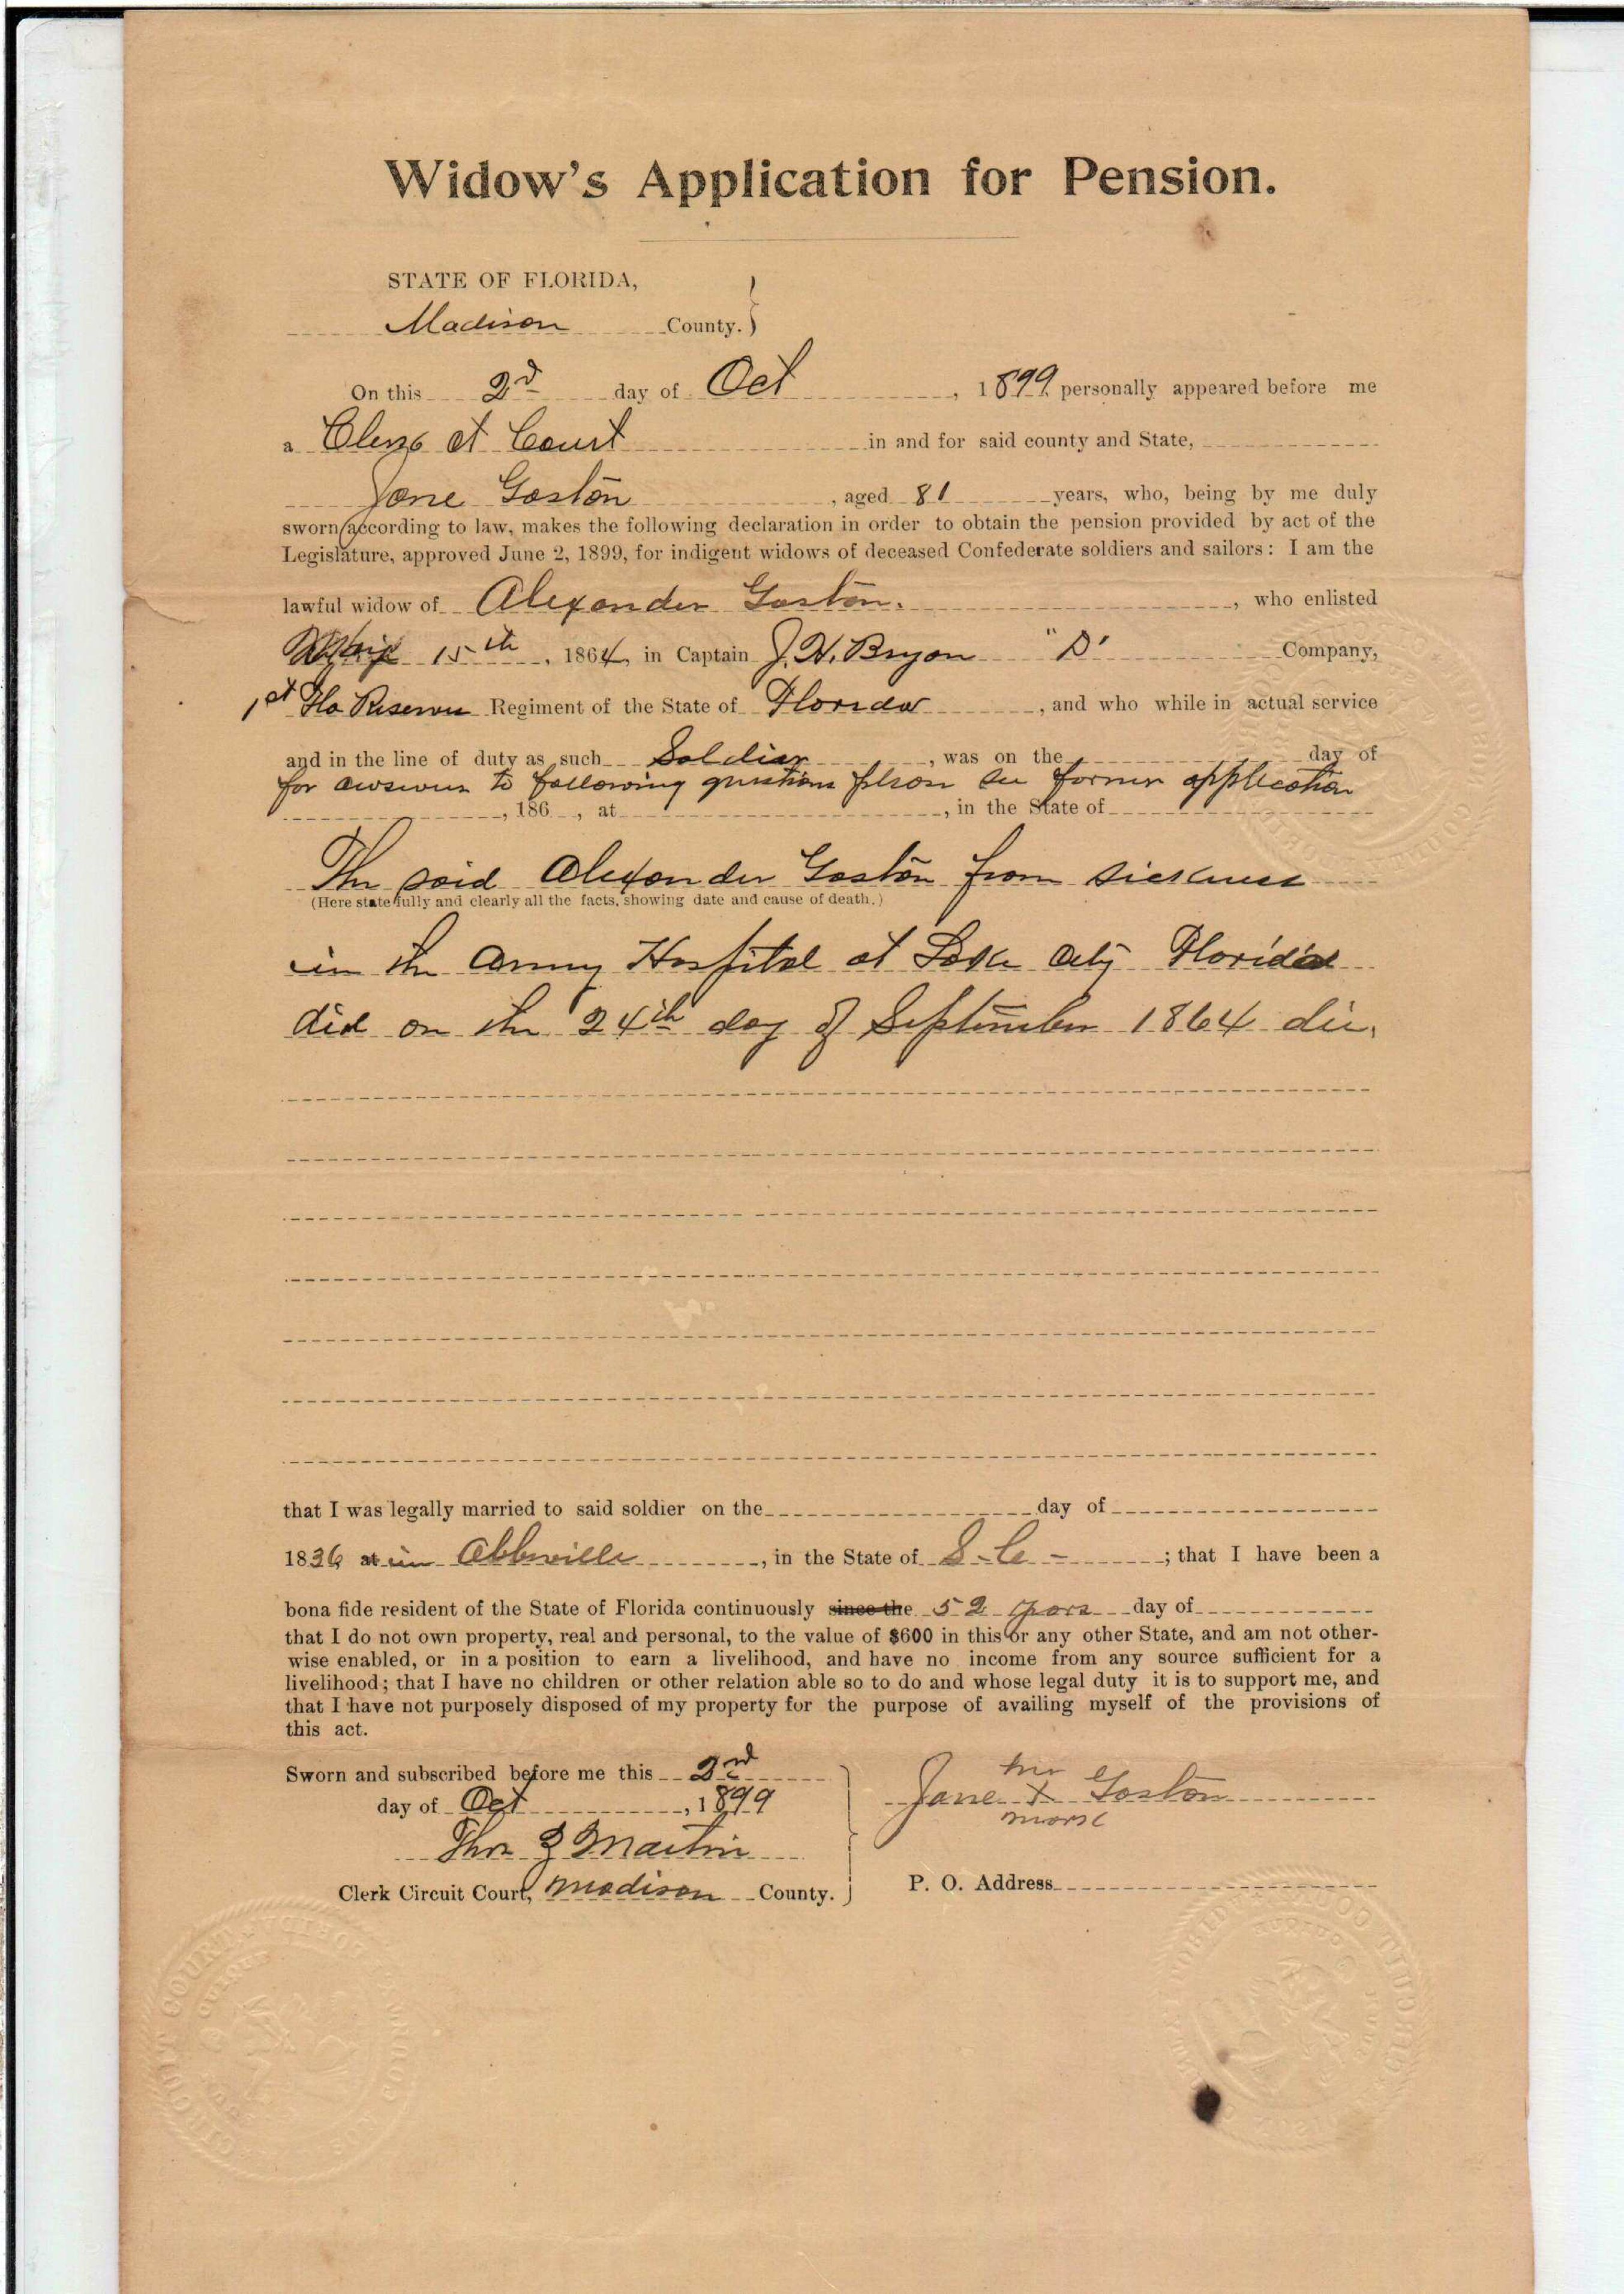 Widow's Application for Pension.
STATE OF FLORIDA,
Madison County. }
On this 2d day of Oct , 1899 personally appeared before me
a Clerk ct Court in and for said county and State,
Jane Gaston , aged 81 years, who, being by me duly
sworn according to law, makes the following declaration in order to obtain the pension provided by act of the
Legislature, approved June 2, 1899, for indigent widows of deceased Confederate soldiers and sailors: I am the
lawful widow of Alexander Gaston. , who enlisted
15th , 1864, in Captain J. H. Bryan "D" Company,
1st Fla Reserve Regiment of the State of Florida , and who while in actual service
and in the line of duty as such Soldier , was on the day of
for answers to following questions please see former application
, 186 , at , in the State of
The said Alexander Gaston from sickness
(Here state fully and clearly all the facts, showing date and cause of death.)
in the Army Hospital at Lake City Florida
did on the 24th day of September 1864 die.
that I was legally married to said soldier on the day of
1836 at in Abbeville , in the State of S. C. ; that I have been a
bona fide resident of the State of Florida continuously since the 52 years day of
that I do not own property, real and personal, to the value of $600 in this or any other State, and am not other-
wise enabled, or in a position to earn a livelihood, and have no income from any source sufficient for a
livelihood; that I have no children or other relation able so to do and whose legal duty it is to support me, and
that I have not purposely disposed of my property for the purpose of availing myself of the provisions of
this act.
Sworn and subscribed before me this 2nd
day of Oct , 1899
Martin
Clerk Circuit Court, Madison County.
her
Jane X Gaston
mark
P. O. Address
CIRCUIT COURT